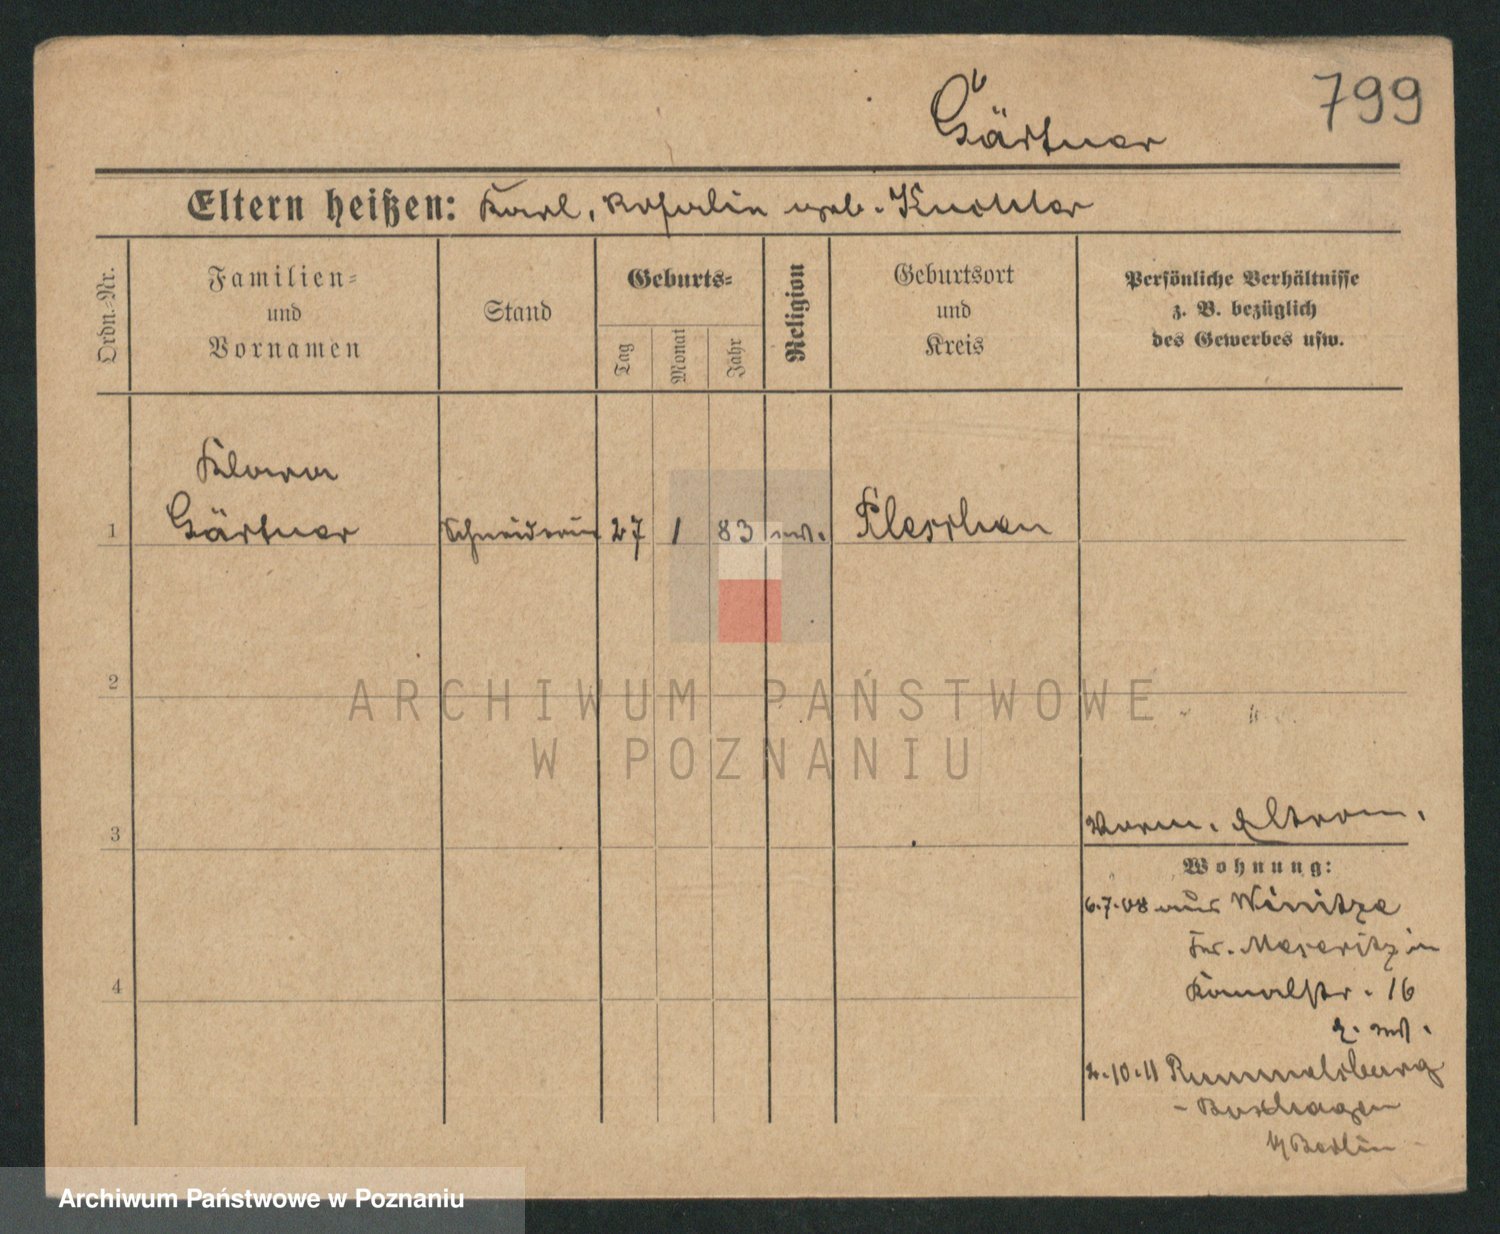 799
Gärtner
Eltern heißen: Karl, Rosalie geb. Knoller
Ordn.-Nr.
Familien-
und
Vornamen
Stand
Geburts-
Tag
Monat
Jahr
Religion
Geburtsort
und
Kreis
Persönliche Verhältnisse
z. B. bezüglich
des Gewerbes usw.
Klara
1 Gärtner Schneiderin 27 1 83 Pleschen
2
ARCHIWUM PAŃSTWOWE
W POZNANIU
3
Wohnung:
6.7.08 aus Weinitze
Kr. Meseritz in
4
Kanalstr. 16
2.10.11 Rummelsburg
- Boxhagen
b/Berlin
Archiwum Państwowe w Poznaniu